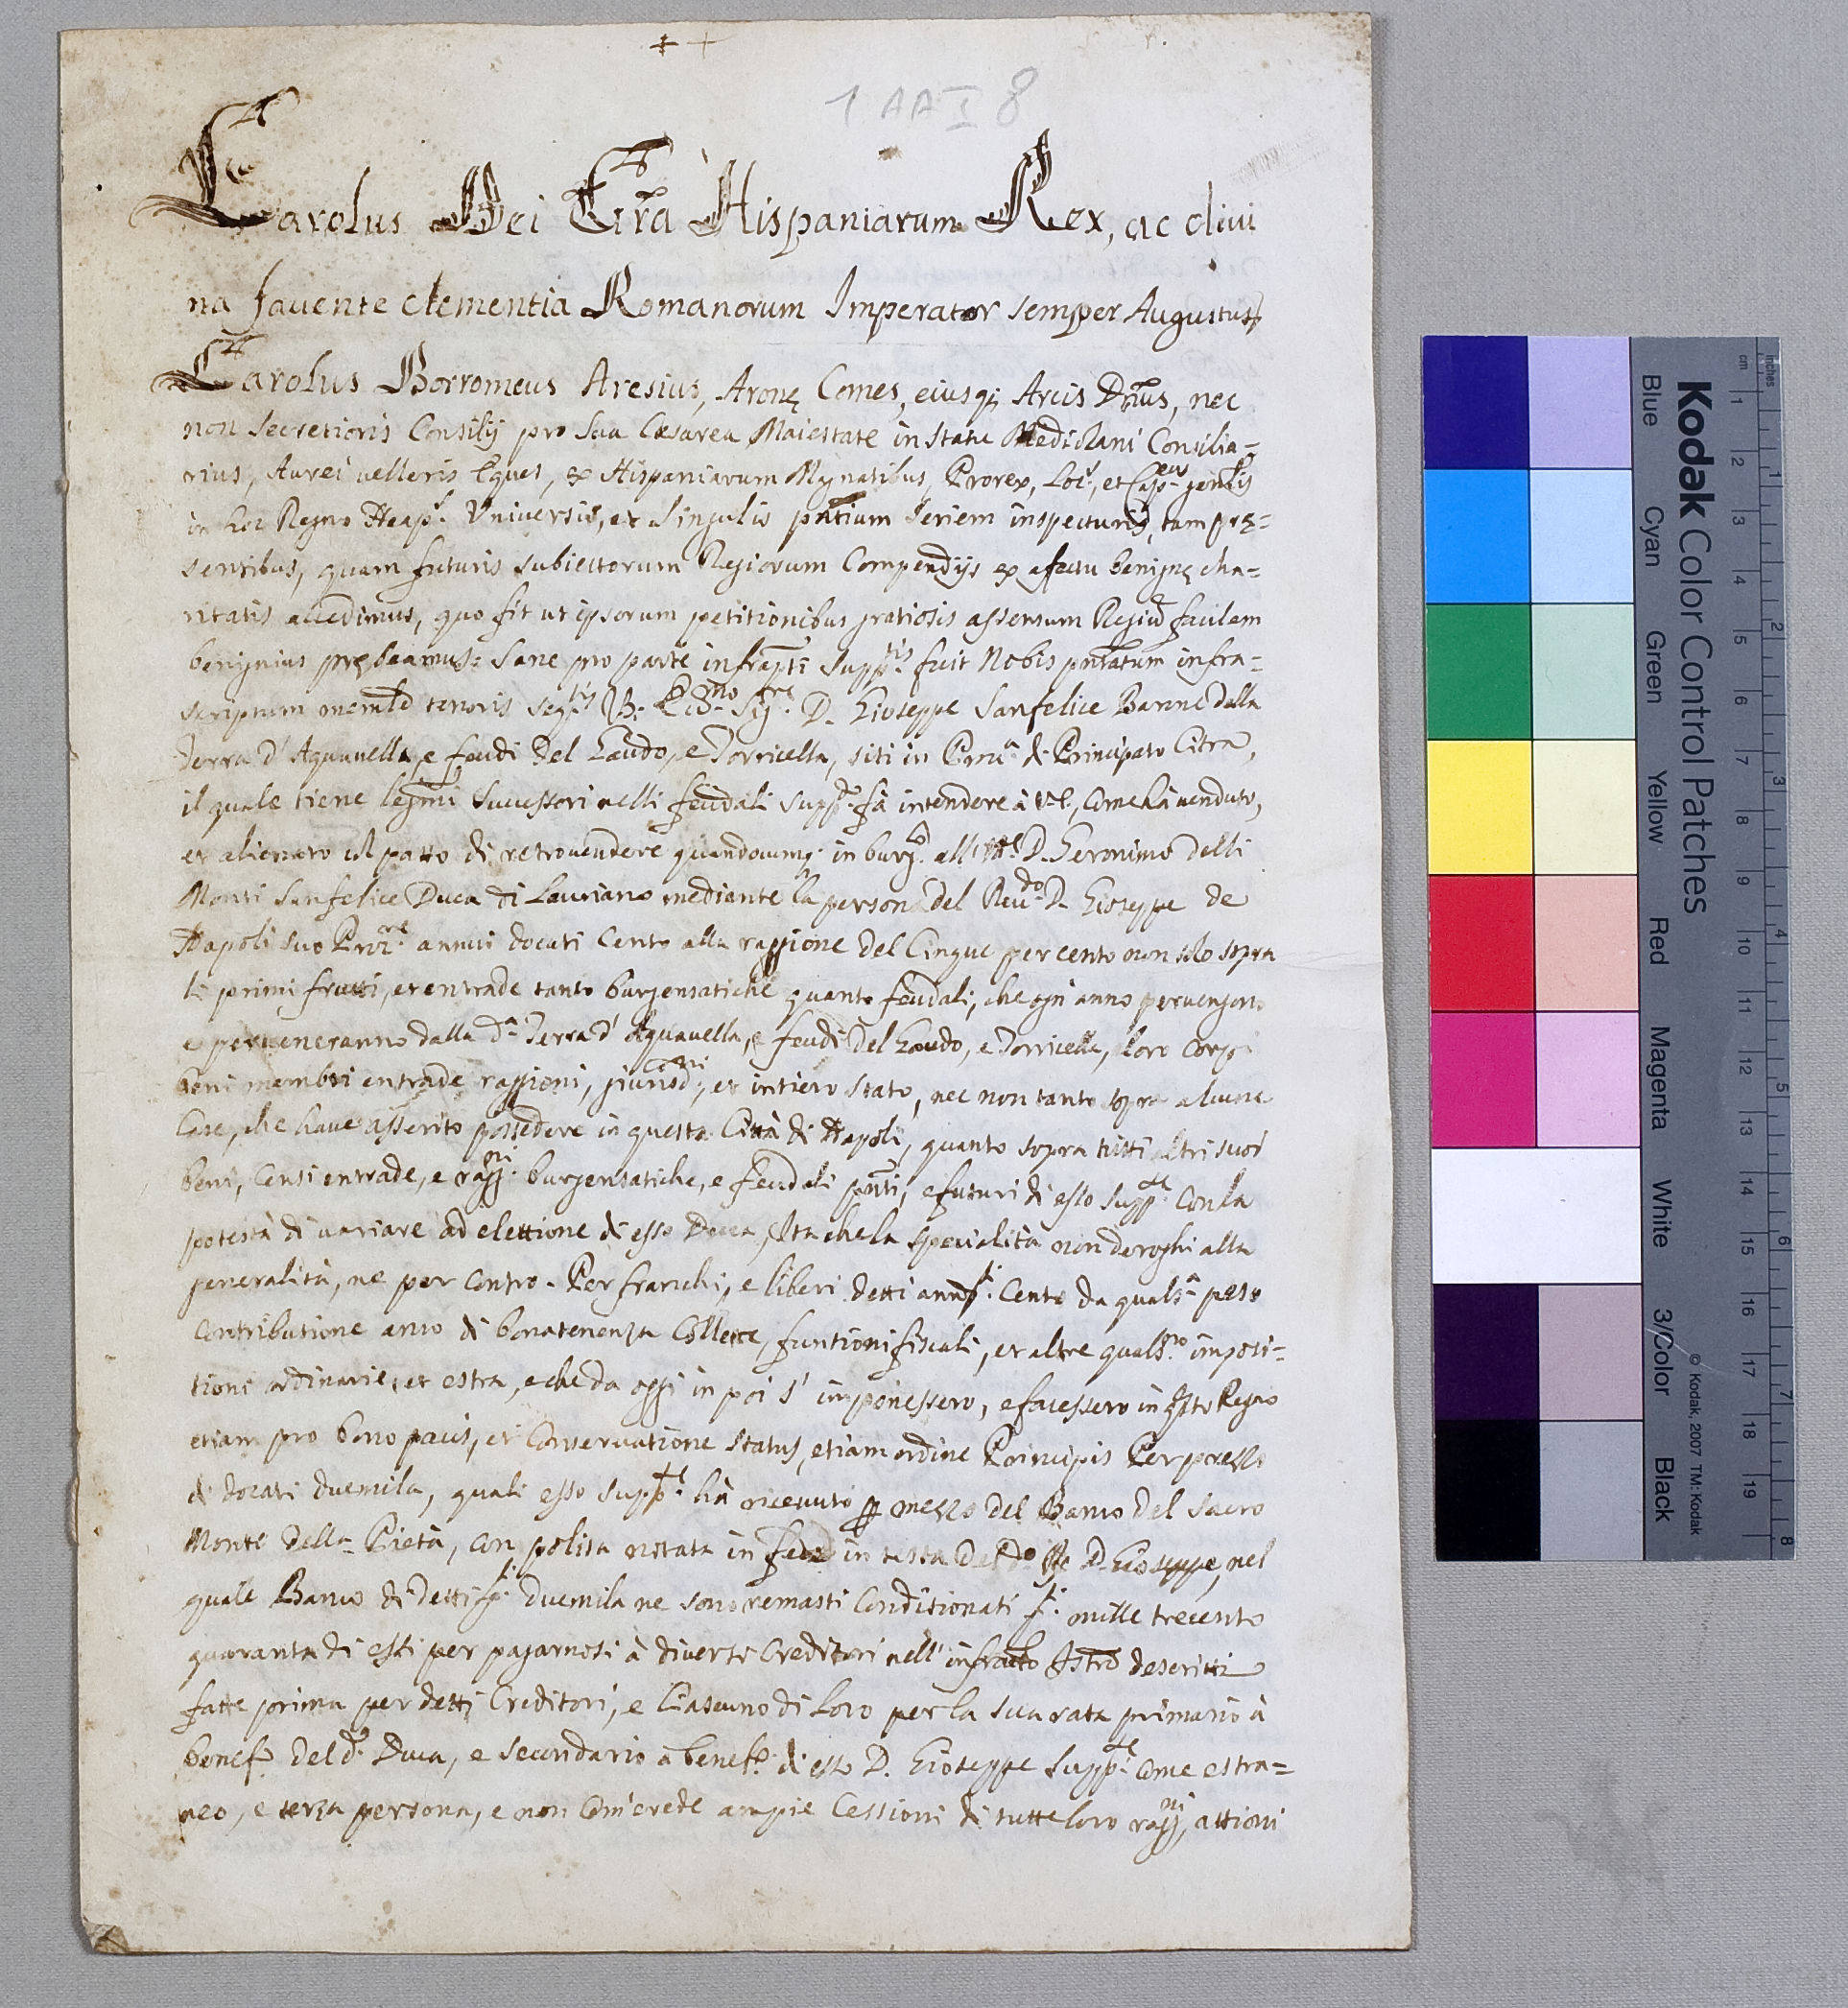 1 AA I 8
Carolus Dei Gra Hispaniarum Rex, ac divi
na favente clementia Romanorum Imperator semper Augustus
Carolus Borromeus Aresius, Aronę Comes, eiusq; Arcis Dnus, nec
non secretioris Consilij pro sua Cæsarea Maiestate in statu Mediolani Consilia=
rius, Aurei velleris Eques, ex Hispaniarum Magnatibus, Prorex, Loc.t, et Cap.eus gen̅lis
in hoc Regno Neap.s Universis, et singulis pn̅tium seriem inspecturis, tam prę=
sentibus, quam futuris subiectorum Regiorum Compendijs ex afectu benignę cha=
ritatis accedimus, quo fit ut ipsorum petitionibus gratiosis assensum Regiũ facilem
benignius prębeamus: Sane pro parte infrap̅ti supp.tis fuit Nobis pn̅tatum infra=
scriptum memle tenoris seq.tis V3. Ecc.mo Sig.re D. Gioseppe Sanfelice Barone della
Terra d' Aquavella, e feudi del Laudo, e Torricella, siti in Prou.a di Principato Citra,
il quale tiene leg̅mi successori nelli feudali supp.do fà intendere à V.E., come hà venduto,
et alienato col patto di retrovendere quandocumq. in burg.o all' Ill.e D. Geronimo delli
Monti Sanfelice Duca di Lauriano mediante la persona del Reu.do D. Gioseppe de
Napoli suo Proc.re annui docati cento alla raggione del Cinque per cento non solo sopra
li primi frutti, et entrade tanto burgensatiche quanto feudali, che ogn' anno pervengono
e perveneranno dalla d.a Terra d' Aquavella, e feudi del Laudo, e Torricella, loro Corpi
beni membri entrade raggioni, giurisd.ni, et intiero stato, nec non tanto sopra alcune
Case, che have asserito possedere in questa Città di Napoli, quanto sopra tutti altri suoi
beni, Censi entrade, e ragg.ni burgensatiche, e feudali pn̅ti, e futuri di esso supp.te con la
potestà di variare ad elettione di esso Duca, Ita che la specialità non deroghi alla
generalità, ne per contro. Per franchi, e liberi detti annj. Cento da quals.a peso
contributione anco di bonatenenza Collette, funtioni fiscali, et altre quals.no imposi=
tioni ordinarie, et estra, e che da oggi in poi s' imponessero, e facessero in q̅sto Regno
etiam pro bono pacis, et Conservatione status, etiam ordine Principis Per prezzo
di docati duemila, quali esso supp.te hà ricevuto p̱ mezzo del Banco del Sacro
Monte della Pietà, con polisa notata in fede in testa del d.o D. Gioseppe, nel
quale Banco di detti d.i duemila ne sono remasti Conditionati d.i mille trecento
quaranta di essi per pagarnosi à diversi Creditori nell' infractõ Istrõ descritti
fatte prima per detti Creditori, e Ciascuno di loro per la sua rata primario à
benef.o del d.o Duca, e secundario a benef.o di esso D. Gioseppe supp.te come estra=
neo, e terza persona, e non com'erede ampie Cessioni di tutte loro ragg.ni, attioni
Kodak Color Control Patches
© Kodak, 2007 TM: Kodak
Blue
Cyan
Green
Yellow
Red
Magenta
White
3/Color
Black
cm
1
2
3
4
5
6
7
8
9
10
11
12
13
14
15
16
17
18
19
Inches
1
2
3
4
5
6
7
8